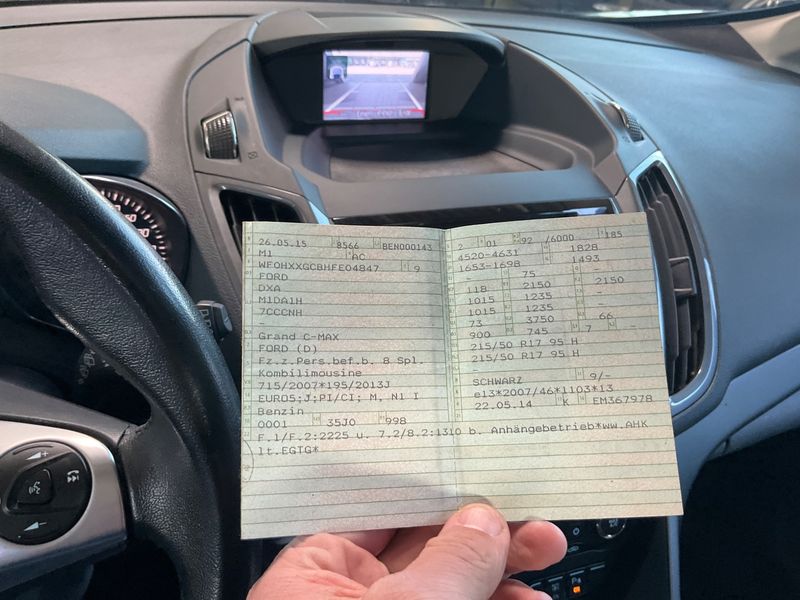 26.05.15 8566 BEN000143
M1 AC
WF0HXXGCBHFE04847 9
FORD
DXA
M1DA1H
7CCCNH
-
Grand C-MAX
FORD (D)
Fz.z.Pers.bef.b. 8 Spl.
Kombilimousine
715/2007*195/2013J
EURO5;J;PI/CI; M, N1 I
Benzin
0001 35J0 998
2 01 92 /6000 185
4520-4631 1828
1653-1698 1493
75 -
118 2150 2150
1015 1235 -
1015 1235 -
73 3750 66
900 745 7 -
215/50 R17 95 H
215/50 R17 95 H
SCHWARZ 9/-
e13*2007/46*1103*13
22.05.14 K EM367978
F.1/F.2:2225 u. 7.2/8.2:1310 b. Anhängebetrieb*ww.AHK
lt.EGTG*